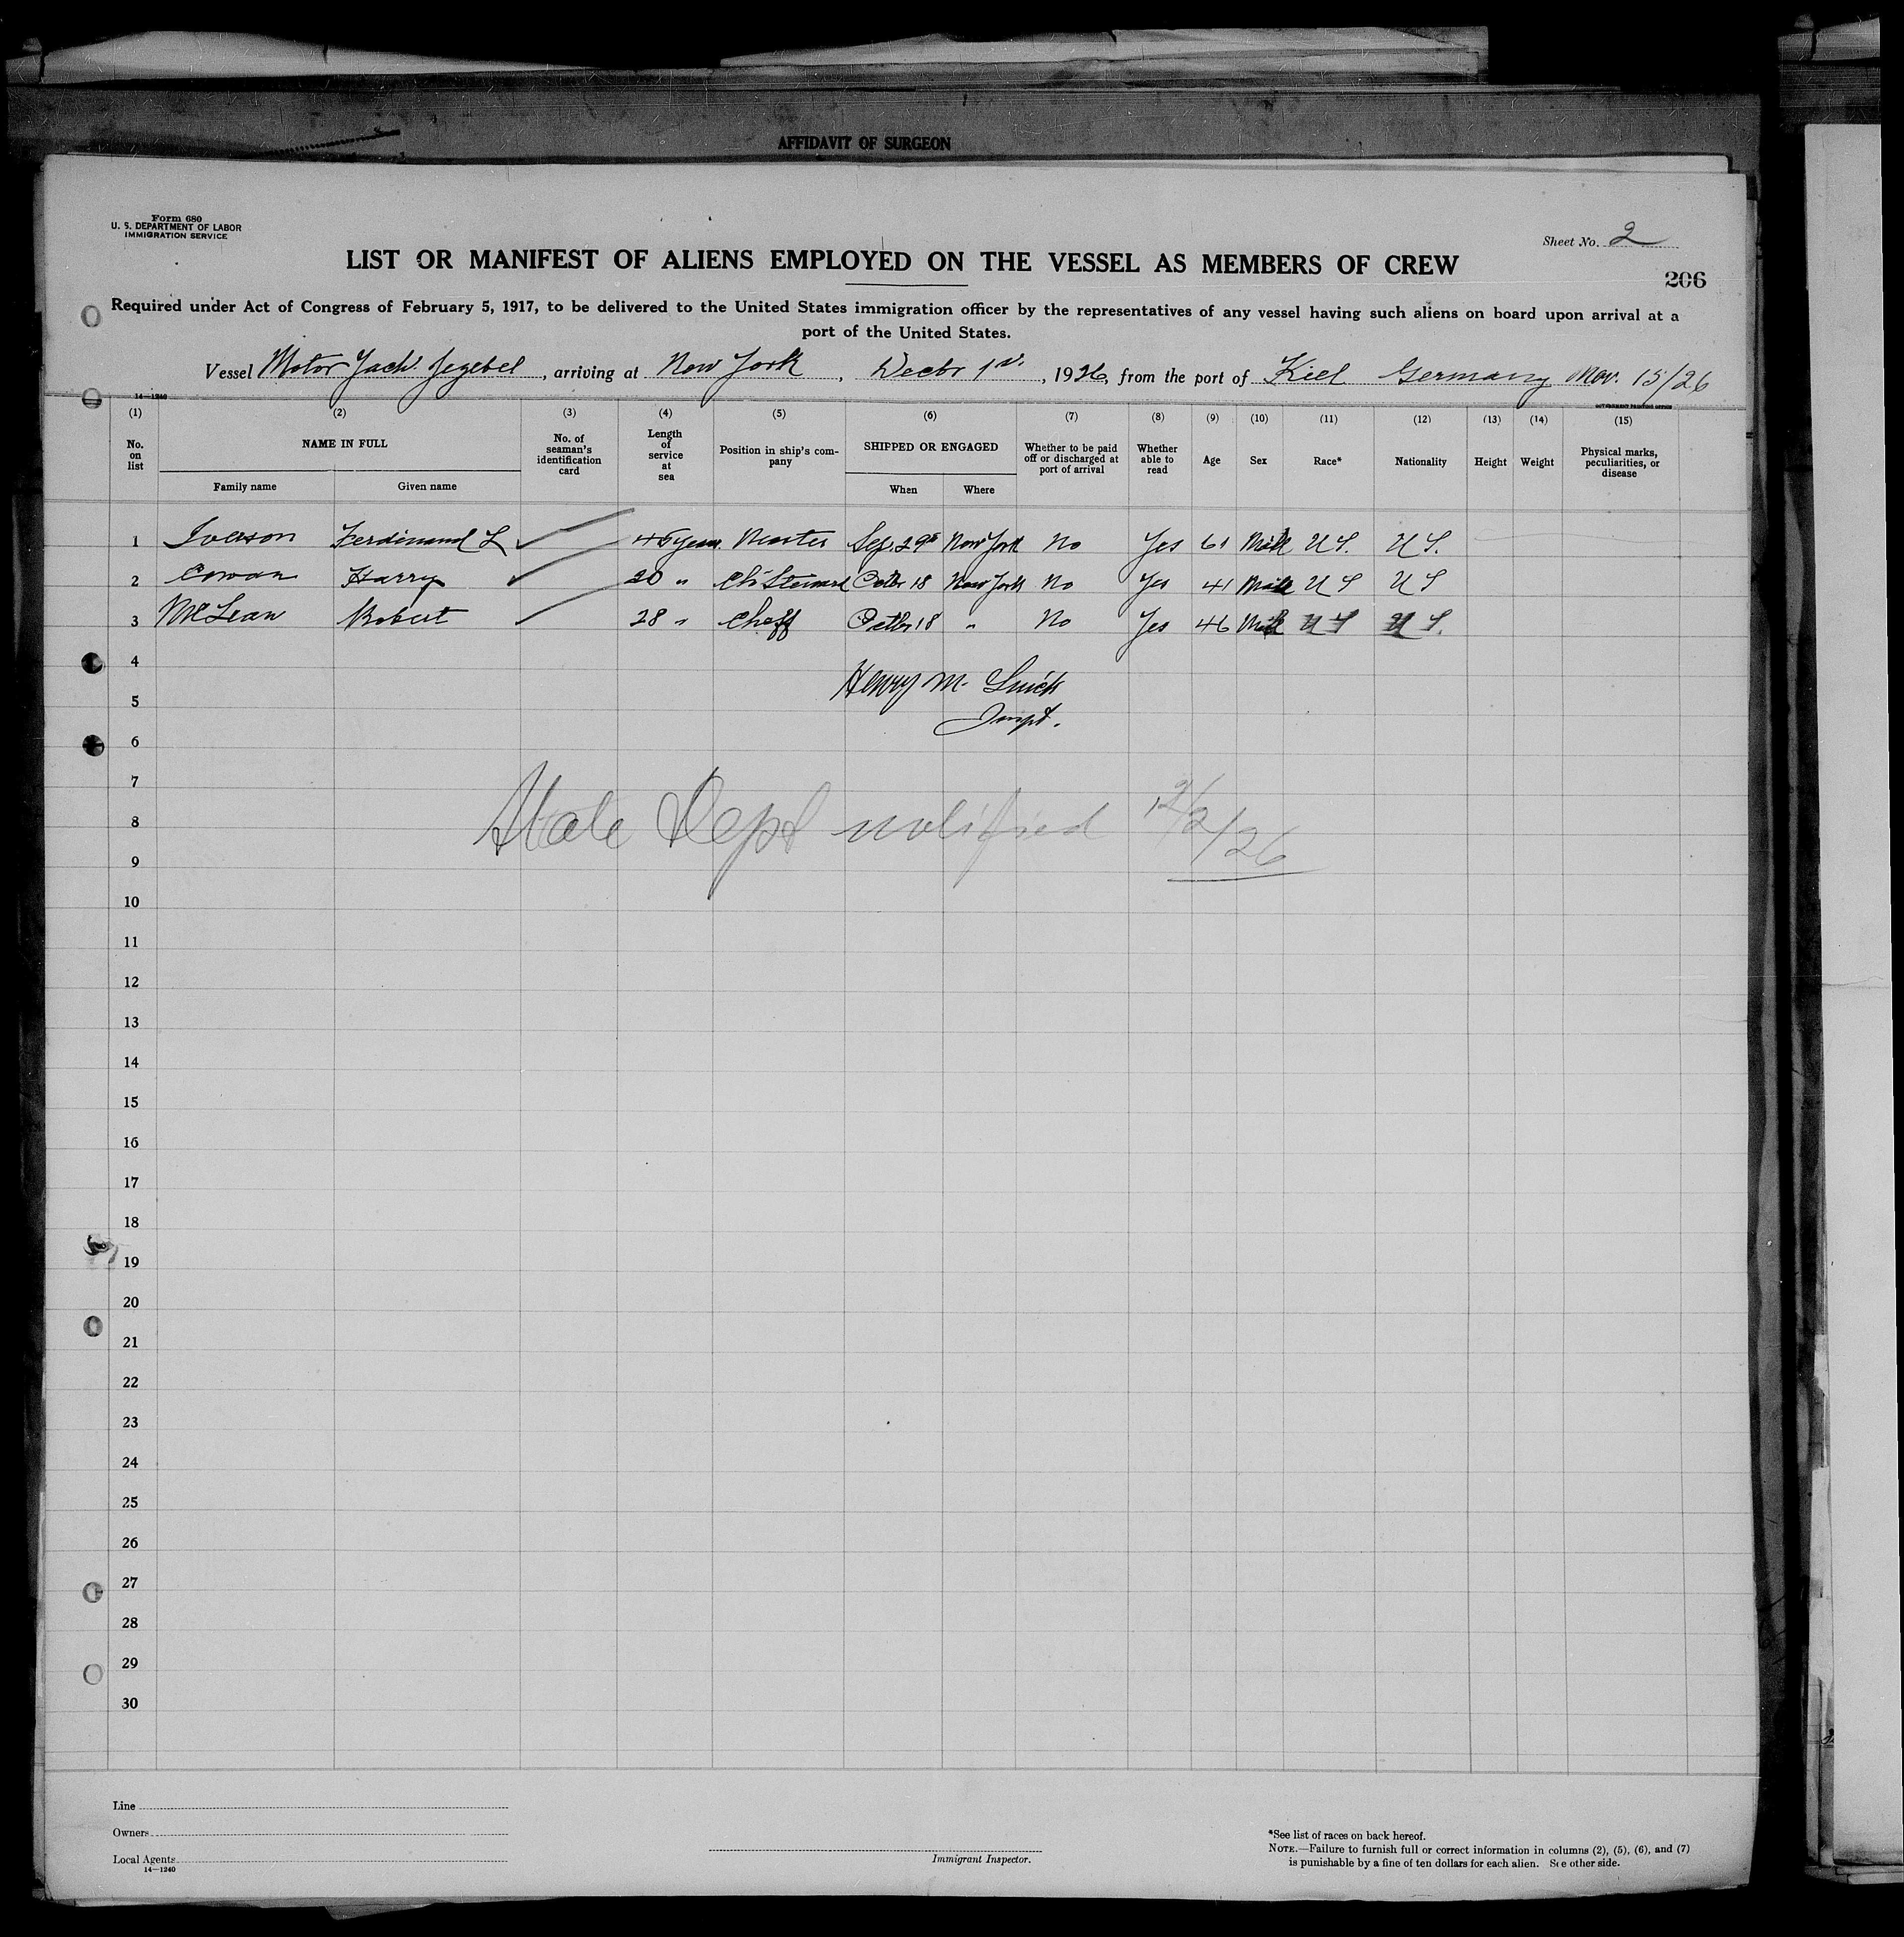 AFFIDAVIT OF SURGEON
Form 680
U. S. DEPARTMENT OF LABOR
IMMIGRATION SERVICE
Sheet No. 2
LIST OR MANIFEST OF ALIENS EMPLOYED ON THE VESSEL AS MEMBERS OF CREW
206
Required under Act of Congress of February 5, 1917, to be delivered to the United States immigration officer by the representatives of any vessel having such aliens on board upon arrival at a
port of the United States.
Vessel Motor Yacht Jezebel, arriving at New York, Decbr 1st, 1926, from the port of Kiel Germany Nov. 15/26
14—1240 GOVERNMENT PRINTING OFFICE
(1) (2) (3) (4) (5) (6) (7) (8) (9) (10) (11) (12) (13) (14) (15)
No. on list NAME IN FULL No. of seaman's identification card Length of service at sea Position in ship's company SHIPPED OR ENGAGED Whether to be paid off or discharged at port of arrival Whether able to read Age Sex Race* Nationality Height Weight Physical marks, peculiarities, or disease
Family name Given name When Where
1 Iverson Ferdinand L 45 years Master Sep. 29th New York No Yes 61 Male U S. U S.
2 Cowan Harry 20 " Ch. Steward Octbr 18 New York No Yes 41 Male U S U S
3 McLean Robert 28 " Cheff Octbr 18 " No Yes 46 Male U S U S.
4
Henry M.
5
Inspt.
6
7
State Dept notified 12/2/26
8
9
10
11
12
13
14
15
16
17
18
19
20
21
22
23
24
25
26
27
28
29
30
Line
Owners
Local Agents
14—1240
Immigrant Inspector.
*See list of races on back hereof.
NOTE.—Failure to furnish full or correct information in columns (2), (5), (6), and (7)
is punishable by a fine of ten dollars for each alien. See other side.